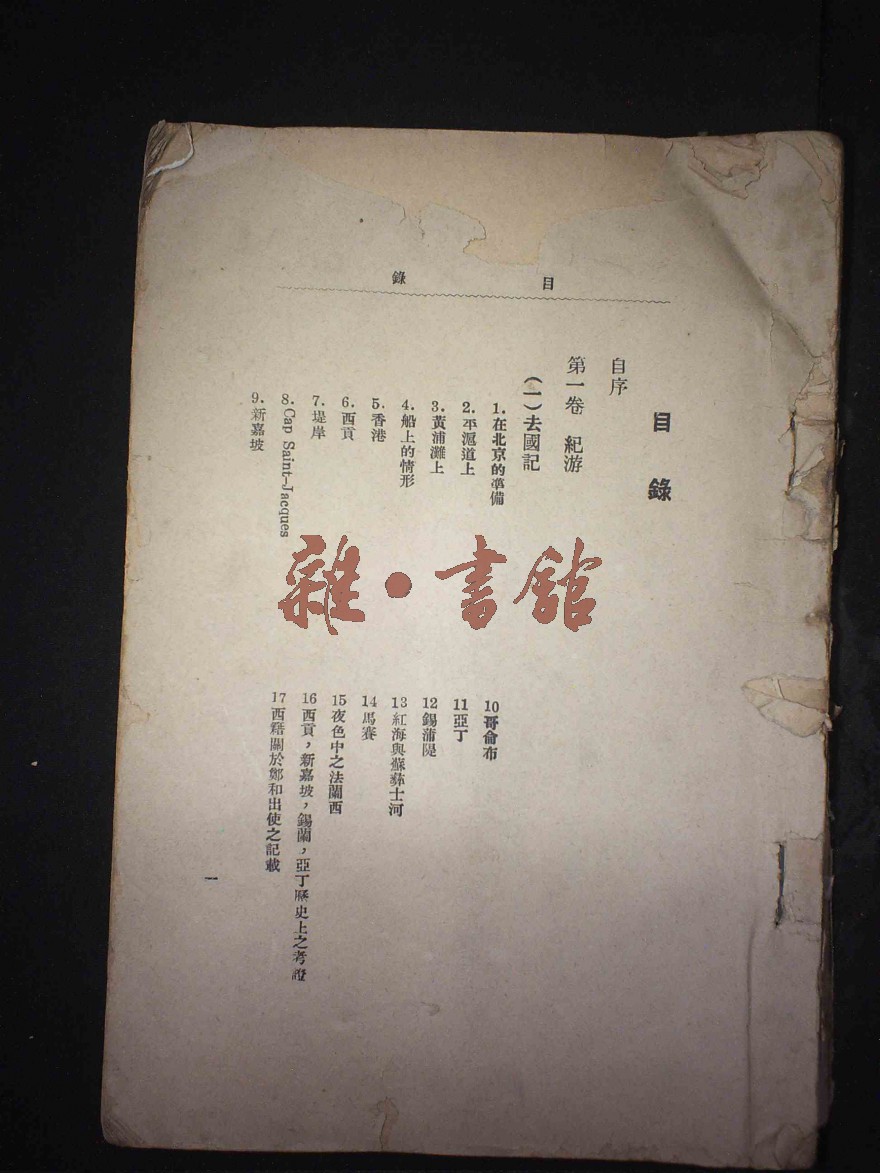 目錄
目錄
自序
第一卷 紀游
(一)去國記
1.在北京的準備
2.平滬道上
3.黃浦灘上
4.船上的情形
5.香港
6.西貢
7.堤岸
8.Cap Saint-Jacques
9.新嘉坡
10哥侖布
11亞丁
12錫蒲隄
13紅海與蘇彝士河
14馬賽
15夜色中之法蘭西
16西貢，新嘉坡，錫蘭，亞丁歷史上之考證
17西籍關於鄭和出使之記載
一
雜·書館